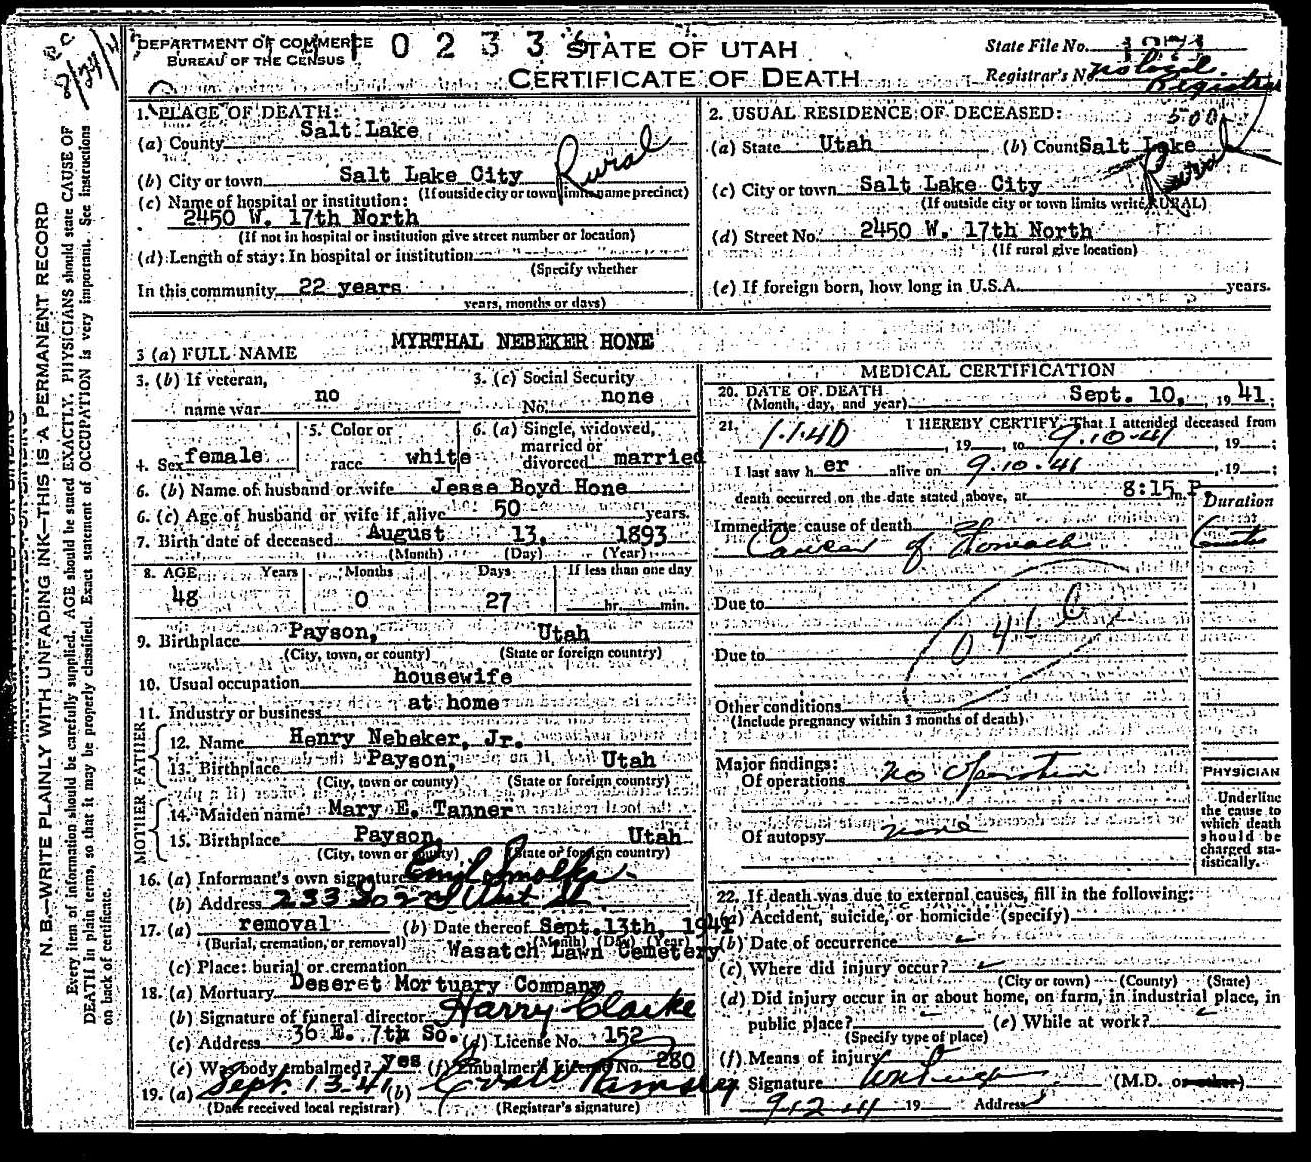 DEPARTMENT OF COMMERCE
BUREAU OF THE CENSUS
1 0 2 3 3
STATE OF UTAH
CERTIFICATE OF DEATH
State File No. 1271
Registrar's No.
1. PLACE OF DEATH:
(a) County Salt Lake
(b) City or town Salt Lake City Rural
(If outside city or town limits name precinct)
(c) Name of hospital or institution:
2450 W. 17th North
(If not in hospital or institution give street number or location)
(d) Length of stay: In hospital or institution
(Specify whether
In this community 22 years
years, months or days)
2. USUAL RESIDENCE OF DECEASED:
(a) State Utah (b) County Salt Lake
(c) City or town Salt Lake City Rural
(If outside city or town limits write RURAL)
(d) Street No. 2450 W. 17th North
(If rural give location)
(e) If foreign born, how long in U.S.A. years.
3 (a) FULL NAME MYRTHAL NEBEKER HONE
3. (b) If veteran, name war no
3. (c) Social Security No. none
4. Sex female
5. Color or race white
6. (a) Single, widowed, married or divorced married
6. (b) Name of husband or wife Jesse Boyd Hone
6. (c) Age of husband or wife if alive 50 years.
7. Birth date of deceased August 13, 1893
(Month) (Day) (Year)
8. AGE Years Months Days If less than one day
48 0 27 hr. min.
9. Birthplace Payson, Utah
(City, town, or county) (State or foreign country)
10. Usual occupation housewife
11. Industry or business at home
FATHER
12. Name Henry Nebeker, Jr.
13. Birthplace Payson, Utah
(City, town or county) (State or foreign country)
MOTHER
14. Maiden name Mary E. Tanner
15. Birthplace Payson, Utah
(City, town or county) (State or foreign country)
16. (a) Informant's own signature Emil Smolka
(b) Address 233 So 2nd West St
17. (a) removal (b) Date thereof Sept. 13th, 1941
(Burial, cremation, or removal) (Month) (Day) (Year)
(c) Place: burial or cremation Wasatch Lawn Cemetery
18. (a) Mortuary Deseret Mortuary Company
(b) Signature of funeral director Harry Clarke
(c) Address 36 E. 7th So. (d) License No. 152
(e) Was body embalmed? yes (f) Embalmer's License No. 280
19. (a) Sept. 13-41 (b)
(Date received local registrar) (Registrar's signature)
MEDICAL CERTIFICATION
20. DATE OF DEATH
(Month, day, and year) Sept. 10, 1941;
21. I HEREBY CERTIFY, That I attended deceased from
1.1.40, 19 to 9.10.41, 19 ;
I last saw h er alive on 9.10.41, 19 ;
death occurred on the date stated above, at 8:15 P m.
Duration
Immediate cause of death
Cancer of Stomach
Due to
Due to
Other conditions
(Include pregnancy within 3 months of death)
Major findings:
Of operations no operation
Of autopsy none
PHYSICIAN
Underline
the cause to
which death
should be
charged sta-
tistically.
22. If death was due to external causes, fill in the following:
(a) Accident, suicide, or homicide (specify)
(b) Date of occurrence
(c) Where did injury occur?
(City or town) (County) (State)
(d) Did injury occur in or about home, on farm, in industrial place, in
public place? (e) While at work?
(Specify type of place)
(f) Means of injury
Signature (M.D. or other)
9-12-41 19 Address
N. B.—WRITE PLAINLY WITH UNFADING INK—THIS IS A PERMANENT RECORD
Every item of information should be carefully supplied. AGE should be stated EXACTLY. PHYSICIANS should state CAUSE OF
DEATH in plain terms, so that it may be properly classified. Exact statement of OCCUPATION is very important. See instructions
on back of certificate.